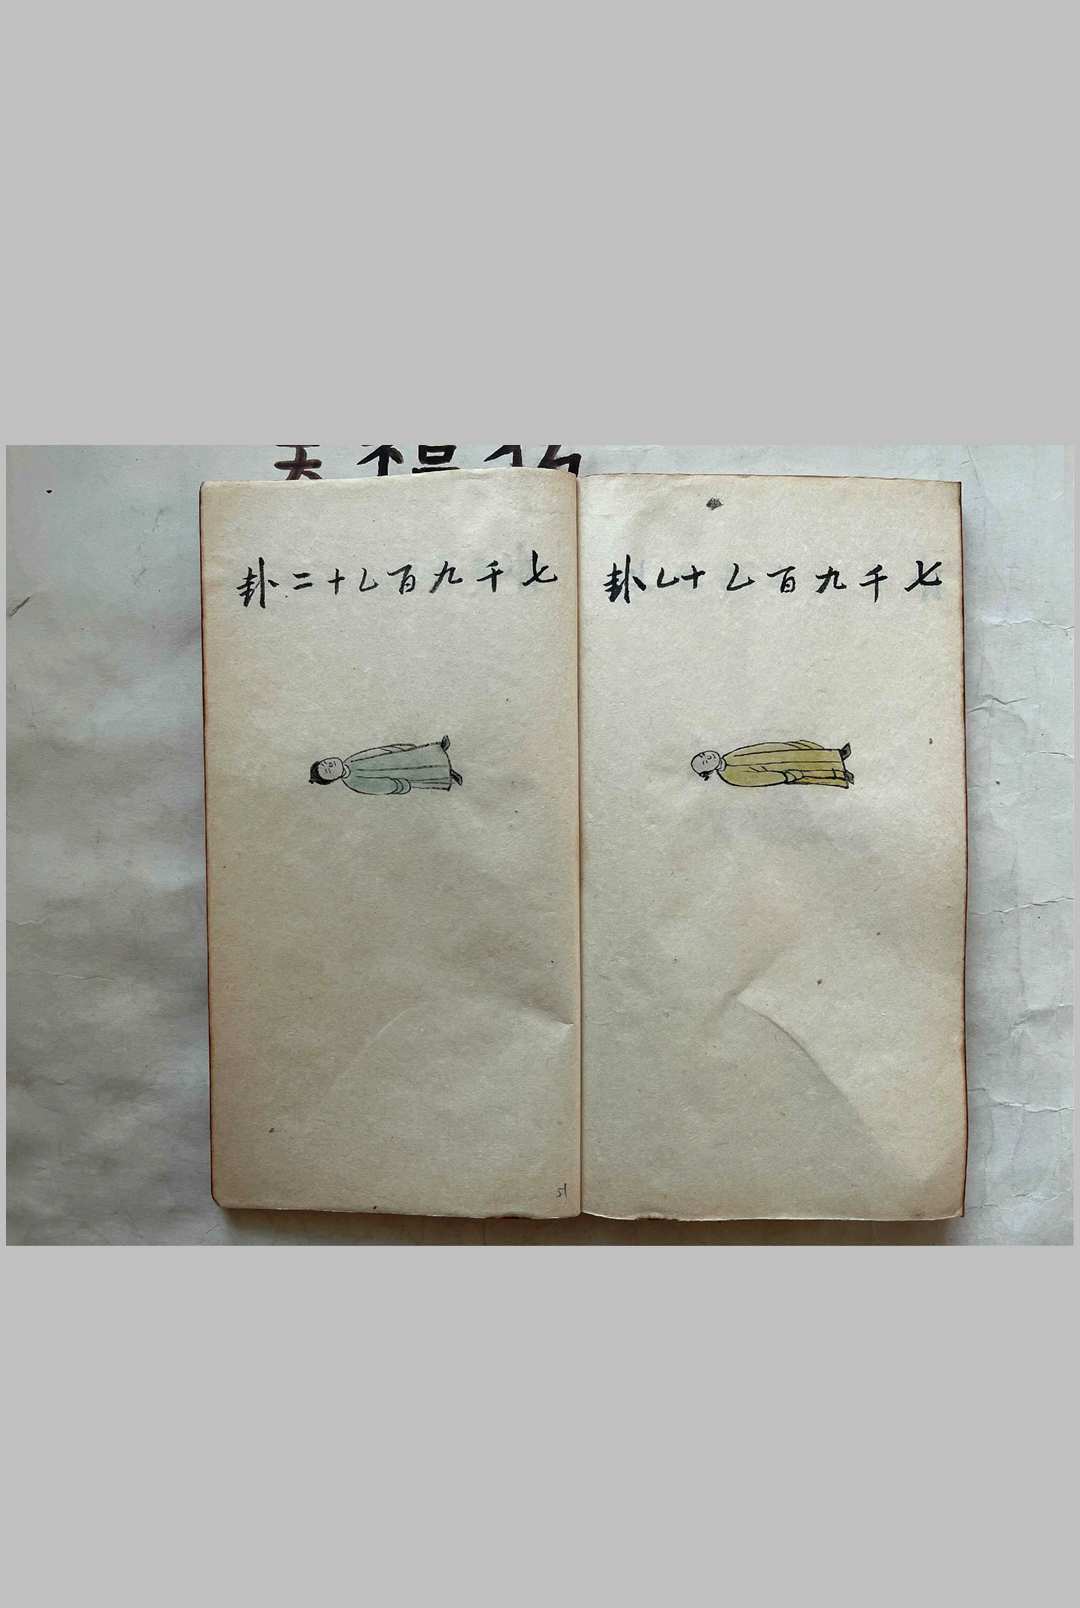 七千九百乙十乙卦
七千九百乙十二卦
51